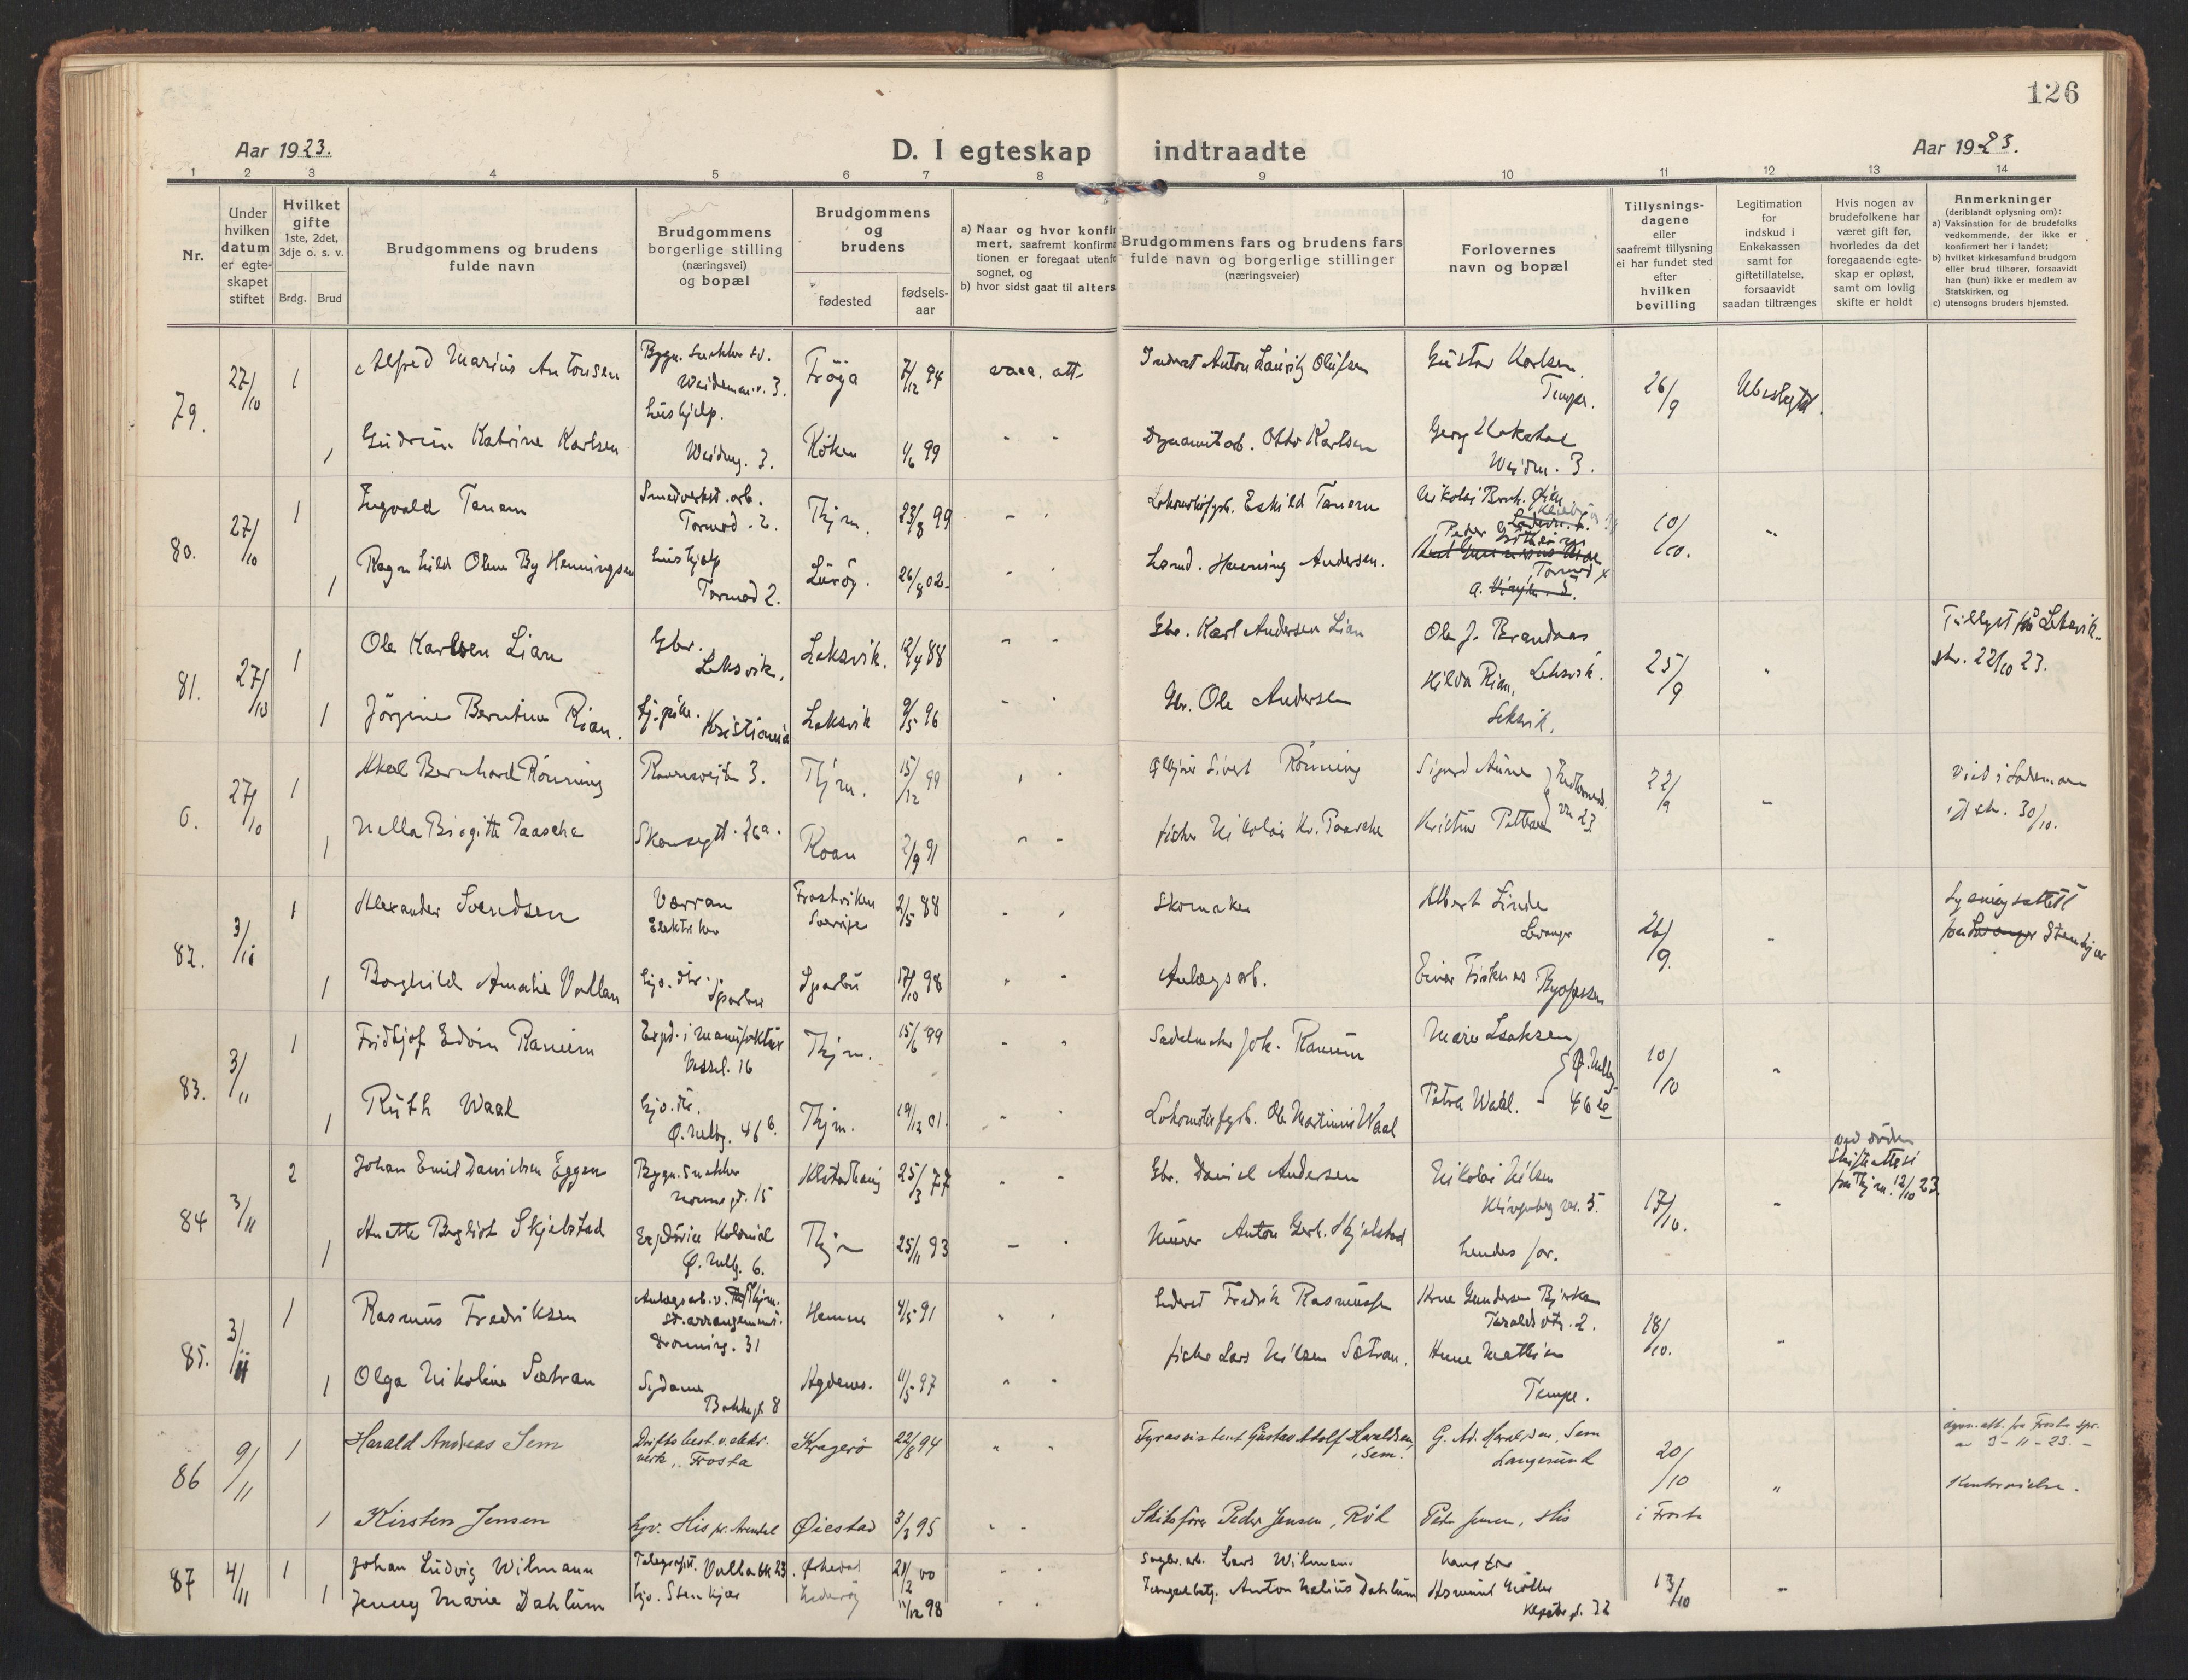 126
Aar 1923.
D. I egteskap indtraadte
Aar 1923.
1 2 3 4 5 6 7 8 9 10 11 12 13 14
Nr.
Under
hvilken
datum
er egte-
skapet
stiftet
Hvilket
gifte
1ste, 2det,
3dje o. s. v.
Brdg. Brud
Brudgommens og brudens
fulde navn
Brudgommens
borgerlige stilling
(næringsvei)
og bopæl
Brudgommens
og
brudens
fødested
fødsels-
aar
a) Naar og hvor konfir
mert, saafremt konfirma
tionen er foregaat utenfo
sognet, og
b) hvor sidst gaat til alters
Brudgommens fars og brudens fars
fulde navn og borgerlige stillinger
(næringsveier)
Forlovernes
navn og bopæl
Tillysnings-
dagene
eller
saafremt tillysning
ei har fundet sted
efter
hvilken
bevilling
Legitimation
for
indskud i
Enkekassen
samt for
giftetillatelse,
forsaavidt
saadan tiltrænges
Hvis nogen av
brudefolkene har
været gift før,
hvorledes da det
foregaaende egte-
skap er opløst,
samt om lovlig
skifte er holdt
Anmerkninger
(deriblandt oplysning om):
a) Vaksination for de brudefolks
vedkommende, der ikke er
konfirmert her i landet;
b) hvilket kirkesamfund brudgom
eller brud tilhører, forsaavidt
han (hun) ikke er medlem av
Statskirken, og
c) utensogns bruders hjemsted.
79. 27/10 1 Alfred Marius Antonsen Bygn. snekker Weidem.v. 3. Frøya 7/12 94 vacc. att. Inderst Anton Lauritz Olufsen Gustav Karlsen Tempe. 26/9
1 Gudrun Katrine Karlsen Hushjelp. Weidmv. 3. Røken 99 " " Dynamitarb. Otto Karlsen Georg Weidm. 3.
80. 27/10 1 Ingvald Tanem Smedverkst. arb. Tormod. 2. Thjm. 23/8 99 " " Lokomotivfyrb. Eskild Tanem Nikolai 10/10. "
1 Ragnhild Olene By Henningsen Hushjelp Tormod 2. Lurøy. 26/8 02. " " Henning Andersen. Peder Tormod
81. 27/10 1 Ole Karlsen Lian Gbr. Leksvik. Leksvik. 12/4 88 " " Gbr. Karl Andersen Lian Ole J. Brandaas 25/9 " Tillyst fra Leksvik. 22/10 23.
1 Jørgine Berntine Rian. Tj.pike. Kristiania Leksvik 9/5 96 " " Gbr. Ole Andersen Hilda Rian, Leksvik. Leksvik.
6. 27/10 1 Aksel Bernhard Rönning 3. Thjm. 15/12 99 " " Sivert Rønning Sigurd Aune 22/9 " Viet i Lademoen 30/10.
1 Nella Birgitte Paasche 26a. Roan 2/9 91 " " fisker Nikolai Kr. Paasche Kristine Pettersen 23
82. 3/11 1 Alexander Svendsen Værran Elektriker Frostviken Sverrige 2/5 88 " " Skomaker Albert Linde Levanger 26/9. " Lysningsattest fra Levanger Stenkjær
1 Borghild Amalie Vollan Sparbu Sparbu 17/10 98 " " Anlægsarb. Einar Fisknes
83. 3/11 1 Fridtjof Edvin Ranum Exp. i manufaktur Vessel. 16 Thjm. 15/6 99 " " Sadelmaker Joh. Ranum Marie Isaksen 10/10 "
1 Ruth Waal Ø. Møllg. 46 b. Thjm. 19/12 01. " " Lokomotivfyrb. Ole Martinus Waal Petra Waal. Ø. Møllg. 46
84 3/11 2 Johan Emil Danielsen Eggen Bygn. snekker Nonnegt. 15 Alstadhaug 25/3 77 " " Gbr. Daniel Andersen Nikolai Nilsen Klingenberg vn. 5. 17/10. " ved døden skifteattest fra Thjm. 12/10 23.
1 Anette Bergliot Skjelstad Expeditrice Kolonial Ø. Møllg. 6. Thjm 25/11 93 " " Murer Anton Gerh. Skjelstad hendes far.
85. 3/11 1 Rasmus Fredriksen Anlægsarb. v. Thjm. st. arrangement. Dronning. 31 Hemne 4/5 91 " " Inderst Fredrik Rasmussen Arne Gundersen 2. 18/10. "
1 Olga Nikoline Sætran Sydame Bakkegt. 8 Agdenes. 4/5 97 " " fisker Lars Nilsen Sætran. Tempe.
86 9/11 1 Harald Andreas Sem Driftsbest. v. elektr. verk, Frosta Kragerø 22/8 94 " " Fyrassistent Gustav Adolf Haraldsen, Sem. G. Ad. Haraldsen Sem Langesund 20/10 i Frosta " lysn. att. fra Frosta spr. av 3-11-23. - Kontorvielse.
1 Kirsten Jensen His pr. Arendal Øiestad 3/3 95 " " Skibsfører Peder Jensen, Peder Jensen, His
87 4/11 1 Johan Ludvig Wilmann Telegrafist. 23. Orkedal 00 Lars Wilmann hans far 13/10 "
1 Jenny Marie Dahlum Stenkjær Inderøy 11/12 98 " " Anton Nelius Dahlum Asmund Møller 32